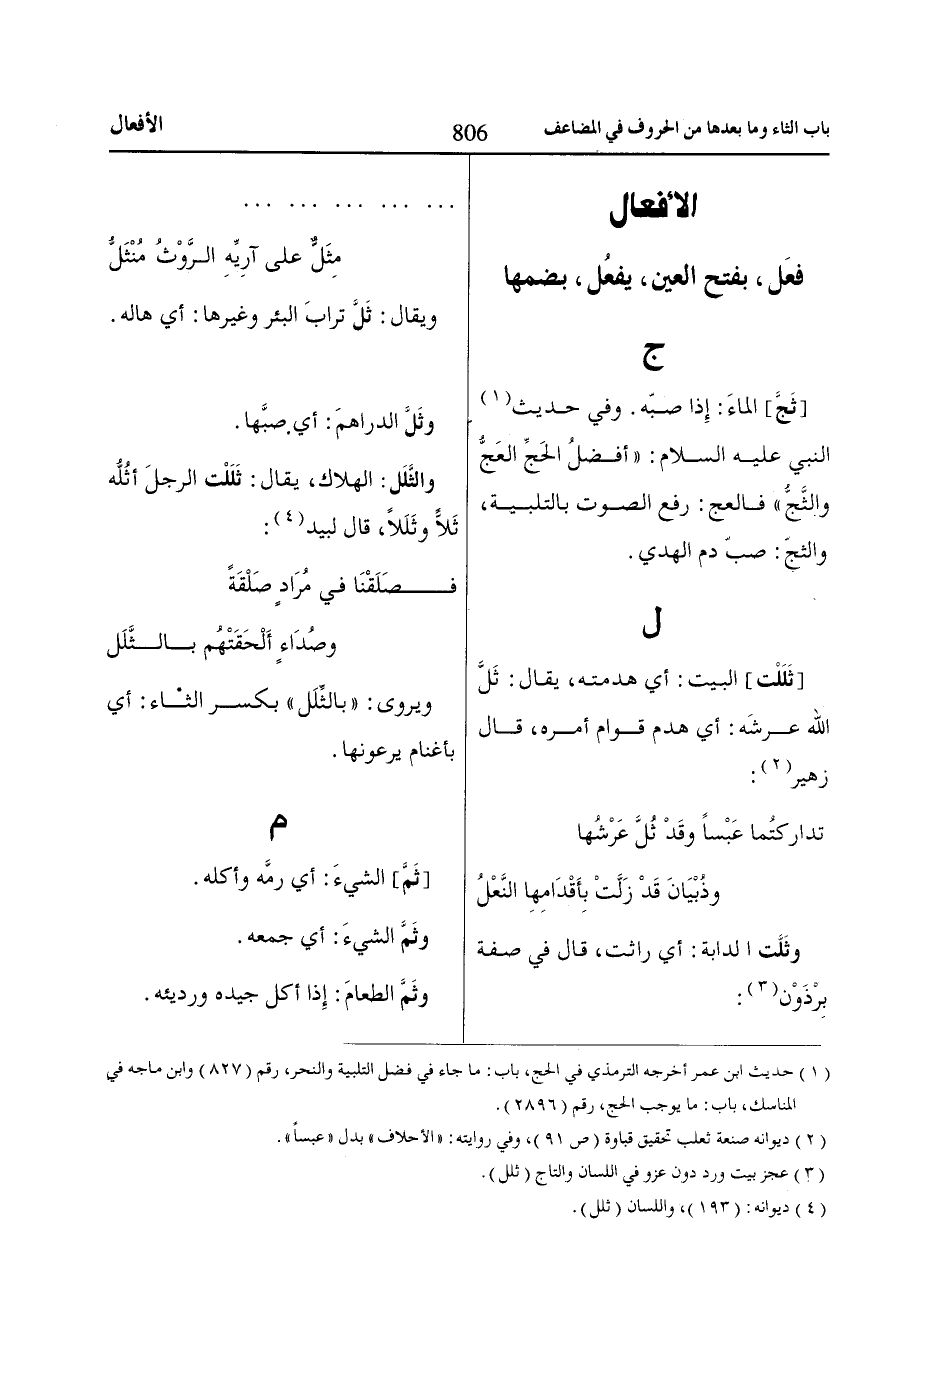 باب الثاء وما بعدها من الحروف في المضاعف
806
الأفعال
الأفعال
فعَل، بفتح العين، يفعُل، بضمها
ج
[ثَجَّ] الماءَ: إذا صبّه. وفي حديث(١)
النبي عليه السلام: «أفضلُ الحَجِّ العَجُّ
والثَّجُّ» فالعج: رفع الصوت بالتلبية،
والثجّ: صبّ دم الهدي.
ل
[ثَلَلْت] البيت: أي هدمته، يقال: ثَلَّ
الله عرشَه: أي هدم قوام أمره، قال
زهير(٢):
تداركتُما عَبْساً وقَدْ ثُلَّ عَرْشُها
وذُبْيَانَ قَدْ زَلَّتْ بأَقْدَامِها النَّعْلُ
وثَلَّت الدابة: أي راثت، قال في صفة
بِرْذَوْن(٣):
... ... ... ... ...
مِثَلٌّ على آرِيِّهِ الرَّوْثُ مُنْثَلُّ
ويقال: ثَلَّ ترابَ البئر وغيرها: أي هاله.
وثَلَّ الدراهمَ: أي صبَّها.
والثَّلَل: الهلاك، يقال: ثَلَلْت الرجلَ أثُلُّه
ثَلاًّ وثَلَلاً، قال لبيد(٤):
فصَلَقْنَا في مُرَادٍ صَلْقَةً
وصُدَاءٍ ألْحَقَتْهُم بالثَّلَل
ويروى: «بالثِّلَل» بكسر الثاء: أي
بأغنام يرعونها.
م
[ثَمَّ] الشيءَ: أي رمَّه وأكله.
وثَمَّ الشيءَ: أي جمعه.
وثَمَّ الطعامَ: إذا أكل جيده ورديئه.
(١) حديث ابن عمر أخرجه الترمذي في الحج، باب: ما جاء في فضل التلبية والنحر، رقم (٨٢٧) وابن ماجه في
المناسك، باب: ما يوجب الحج، رقم (٢٨٩٦).
(٢) ديوانه صنعة ثعلب تحقيق قباوة (ص ٩١)، وفي روايته: «الأحلاف» بدل «عبساً».
(٣) عجز بيت ورد دون عزو في اللسان والتاج (ثلل).
(٤) ديوانه: (١٩٣)، واللسان (ثلل).